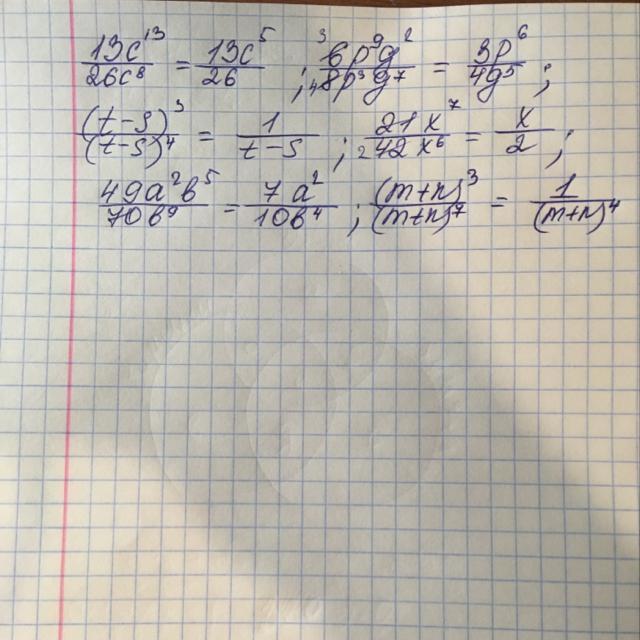 13c¹³/26c⁸ = 13c⁵/26 ; ³6p⁹g²/₄8p³g⁷ = 3p⁶/4g⁵ ;
(t-s)³/(t-s)⁴ = 1/t-s ; 21x⁷/₂42x⁶ = x/2 ;
49a²b⁵/70b⁹ = 7a²/10b⁴ ; (m+n)³/(m+n)⁷ = 1/(m+n)⁴